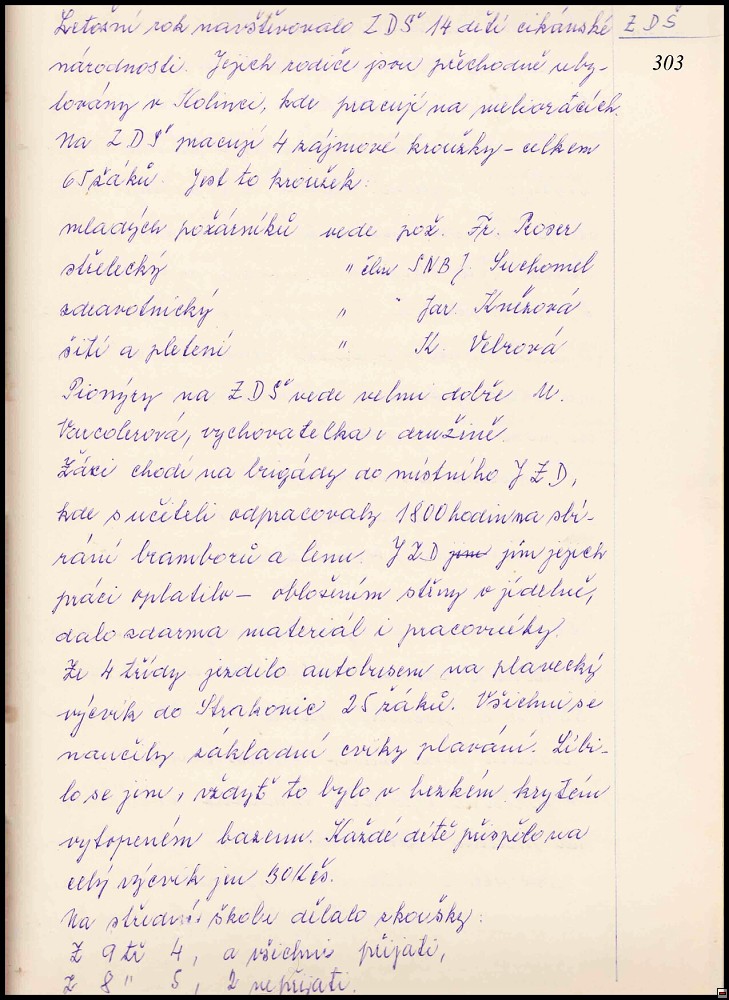 Letošní rok navštěvovalo ZDŠ 14 dětí cikánské
ZDŠ
303
národnosti. Jejich rodiče jsou přechodně uby-
továny v Kolinci, kde pracují na melioracích.
Na ZDŠ pracují 4 zájmové kroužky - celkem
65 žáků. Jest to kroužek:
mladých požárníků vede pož. Fr. Roser
střelecký " člen SNB J. Suchomel
zdravotnický " " Jar. Kněžová
šití a pletení " K. Velrová
Pionýry na ZDŠ vede velmi dobře M.
vychovatelka v družině.
Žáci chodí na brigády do místního JZD,
kde s učiteli odpracovaly 1800 hodin na sbí-
rání bramborů a lenu. JZD jim jim jejich
práci oplatilo - obložením stěny v jídelně,
dalo zdarma materiál i pracovníky.
Ze 4 třídy jezdilo autobusem na plavecký
výcvik do Strakonic 25 žáků. Všichni se
naučily základní cviky plavání. Líbi-
lo se jim, vždyť to bylo v hezkém krytém
vytopeném bazenu. Každé dítě přispělo na
celý výcvik jen 30 Kčs.
Na střední škole dělalo zkoušky:
Z 9 tř 4, a všichni přijati,
z 8 " 5, 2 nepřijati.